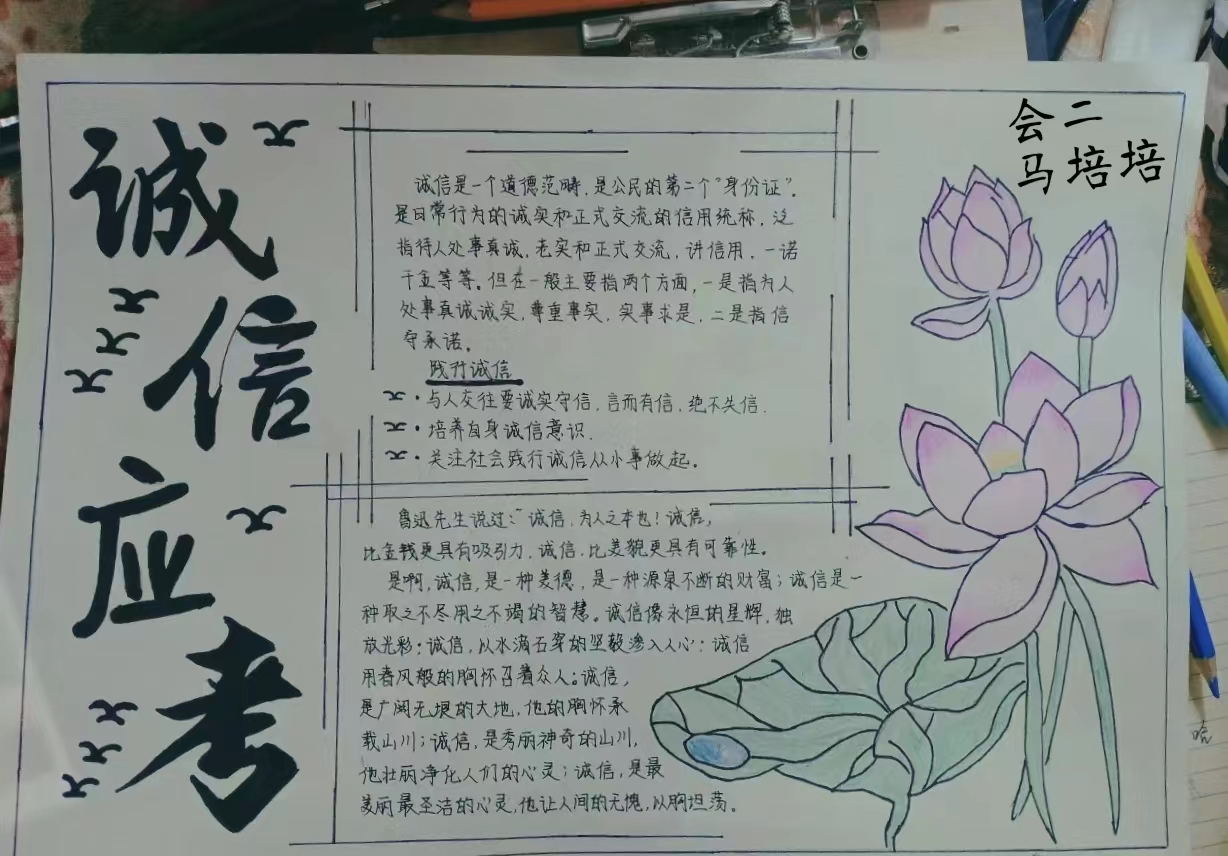 诚信应考
会二
马培培
诚信是一个道德范畴,是公民的第二个“身份证”。
是日常行为的诚实和正式交流的信用统称,泛
指待人处事真诚,老实和正式交流,讲信用,一诺
千金等等。但在一般主要指两个方面,一是指为人
处事真诚诚实,尊重事实,实事求是,二是指信
守承诺。
践行诚信
·与人交往要诚实守信,言而有信,绝不失信.
·培养自身诚信意识.
·关注社会践行诚信从小事做起。
鲁迅先生说过:“诚信,为人之本也!诚信,
比金钱更具有吸引力,诚信,比美貌更具有可靠性。
是啊,诚信,是一种美德,是一种源泉不断的财富;诚信是一
种取之不尽用之不竭的智慧。诚信像永恒的星辉,独
放光彩;诚信,以水滴石穿的坚毅渗入人心:诚信
用春风般的胸怀召着众人。诚信,
是广阔无垠的大地,他的胸怀承
载山川;诚信,是秀丽神奇的山川,
他壮丽净化人们的心灵;诚信,是最
美丽最圣洁的心灵,他让人间的无愧,以胸坦荡。